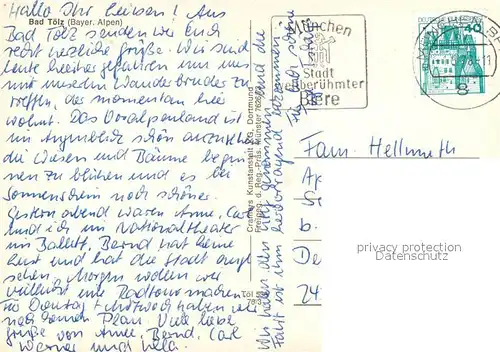 Hallo Ihr Lieben! Aus
Bad Tölz (Bayer. Alpen)
Bad Tölz senden wir Euch
recht herzliche Grüße. Wir sind
heute hierher gefahren um uns
mit unserem Wanderbruder zu
treffen, der momentan hier
wohnt. Das Voralpenland ist
im Augenblick schön anzusehen
die Wiesen und Bäume begin-
nen zu blühen und es ist bei
Sonnenschein noch schöner.
Gestern abend waren Anne, Carl
und ich im Nationaltheater
im Ballett, Bernd hat keine
Lust und hat die Stadt ange-
sehen. Morgen wollen wir
vielleicht eine Radtour machen
Für Dienstag & Mittwoch haben wir
noch keinen Plan. Viele liebe
Grüße von Anne, Bernd, Carl
Werner und
Wir haben den genommen und die
Fahrt ist ihm hervorragend bekommen
Cramers Kunstanstalt KG, Dortmund
Freigeg. d. Reg.-Präs. Münster
Töl
München
Stadt
berühmter
Biere
DEUTSCHE BUNDESPOST
40
8
Fam. Hellmuth
Ap
b.
De
24
privacy protection
watermark